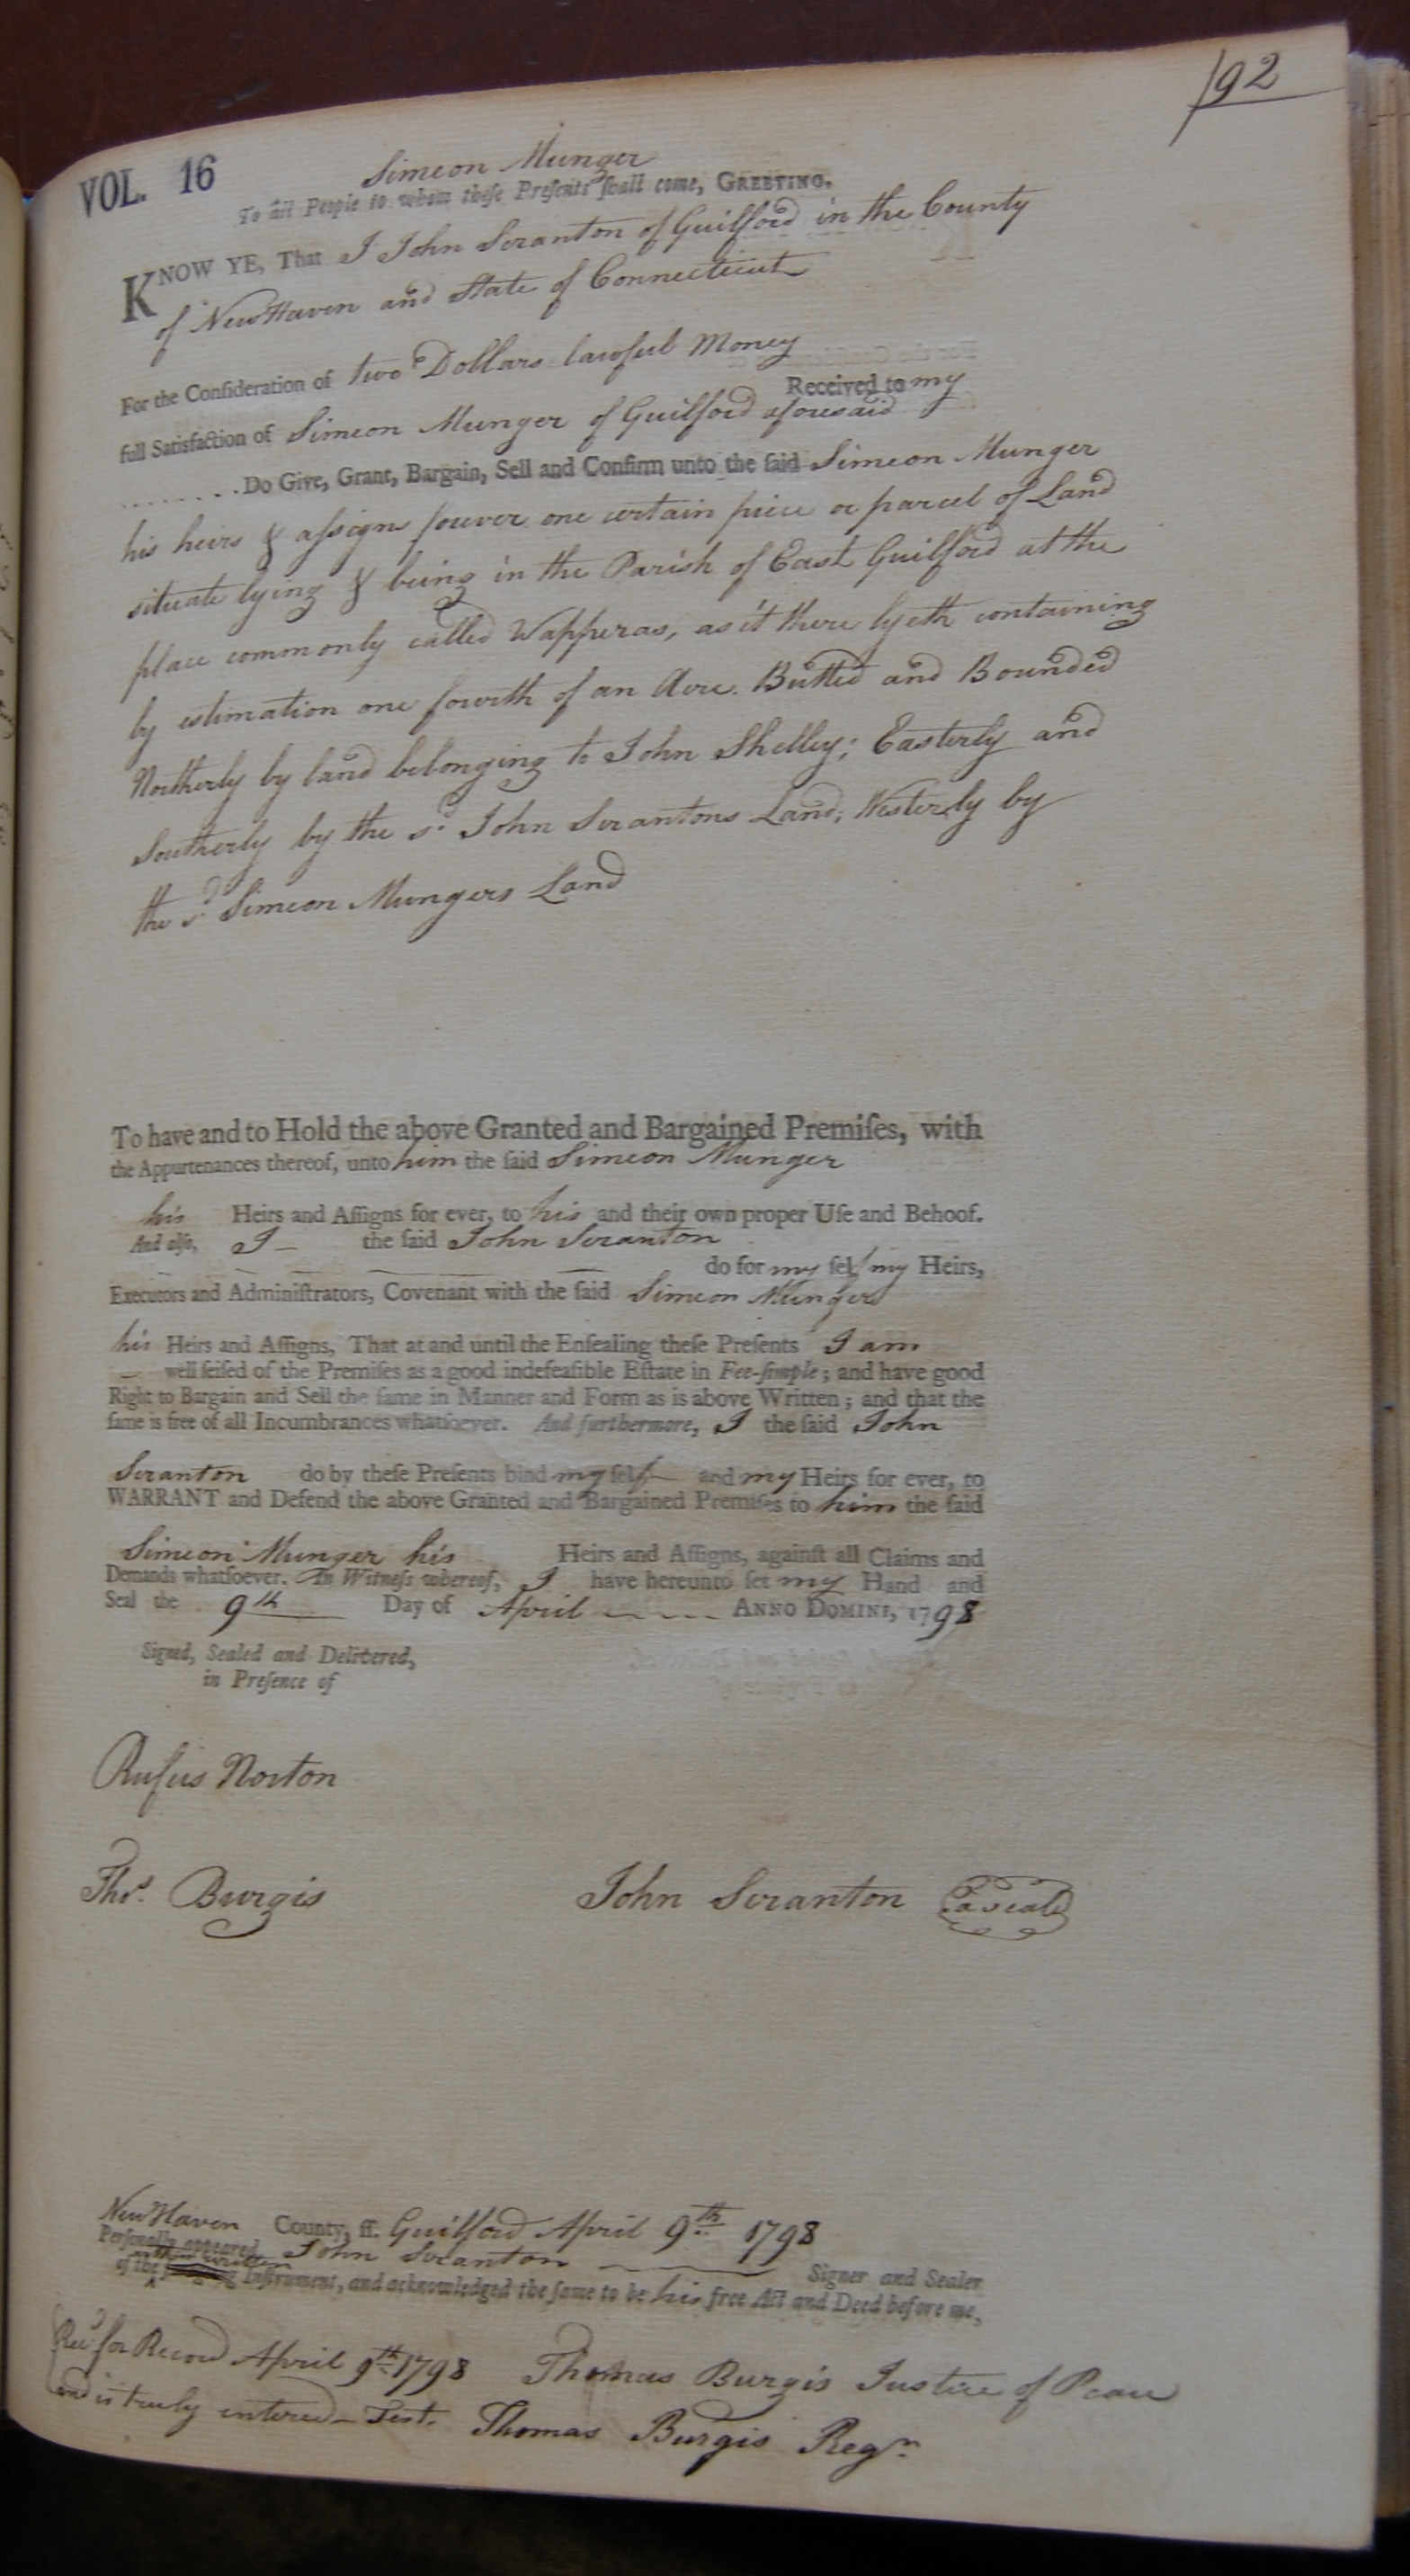 192
VOL. 16
Simeon Munger
To all People to whom theſe Preſents ſhall come, GREETING.
KNOW YE, That I John Scranton of Guilford in the County
of New Haven and State of Connecticut
For the Conſideration of two Dollars lawful Money
Received to my
full Satisfaction of Simeon Munger of Guilford aforesaid
........Do Give, Grant, Bargain, Sell and Confirm unto the ſaid Simeon Munger
his heirs & aſsigns forever one certain piece or parcel of Land
situate lying & being in the Parish of East Guilford at the
place commonly called Wapperas, as it there lyeth containing
by estimation one fourth of an Acre. Butted and Bounded
Northerly by land belonging to John Shelley; Easterly and
Southerly by the sd. John Scrantons Land; Westerly by
the sd. Simeon Mungers Land
To have and to Hold the above Granted and Bargained Premiſes, with
the Appurtenances thereof, unto him the ſaid Simeon Munger
his Heirs and Aſſigns for ever, to his and their own proper Uſe and Behoof.
And alſo, I – the ſaid John Scranton
do for my ſelf my Heirs,
Executors and Adminiſtrators, Covenant with the ſaid Simeon Munger
his Heirs and Aſſigns, That at and until the Enſealing theſe Preſents I am
– well ſeiſed of the Premiſes as a good indefeaſible Eſtate in Fee-ſimple; and have good
Right to Bargain and Sell the ſame in Manner and Form as is above Written; and that the
ſame is free of all Incumbrances whatſoever. And furthermore, I the ſaid John
Scranton do by theſe Preſents bind my ſelf – and my Heirs for ever, to
WARRANT and Defend the above Granted and Bargained Premiſes to him the ſaid
Simeon Munger his Heirs and Aſſigns, againſt all Claims and
Demands whatſoever. In Witneſs whereof, I have hereunto ſet my Hand and
Seal the 9th Day of April ANNO DOMINI, 1798
Signed, Sealed and Delivered,
in Preſence of
Rufus Norton
Thos. Burgis
John Scranton a seal
New Haven County, ſſ. Guilford April 9th 1798
Perſonally appeared John Scranton Signer and Sealer
written
of the Inſtrument, and acknowledged the ſame to be his free Act and Deed before me,
Recd. for Record April 9th 1798 Thomas Burgis Justice of Peace
and is truly entered – Test. Thomas Burgis Regr.